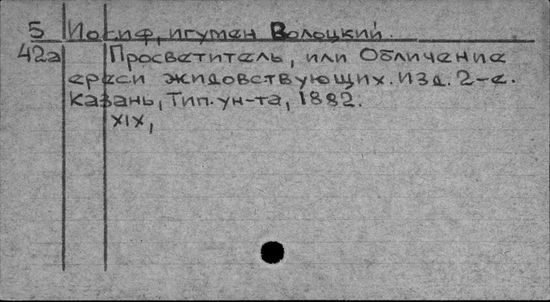 5 Иосиф, игумен Волоцкий.
42а Просветитель, или Обличение
ереси жидовствующих. Изд. 2-е.
Казань, Тип. ун-та, 1882.
XIX,